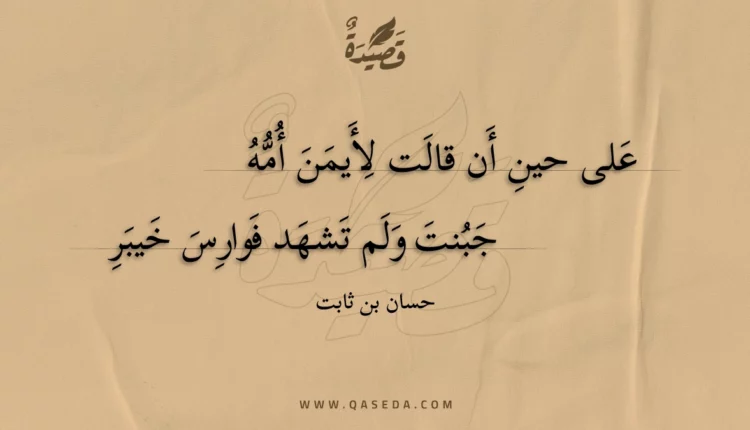 قَصِيْدَةٌ
عَلى حينِ أَن قالَت لِأَيمَنَ أُمُّهُ
جَبُنتَ وَلَم تَشهَد فَوارِسَ خَيبَرِ
حسان بن ثابت
WWW.QASEDA.COM